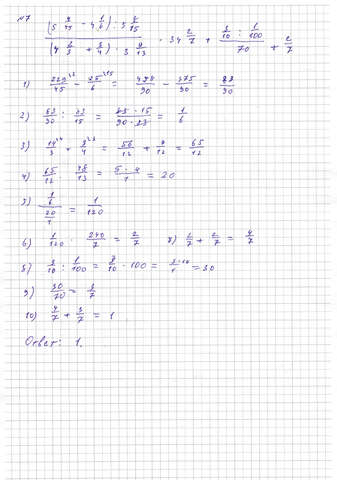 №7
(5 4/45 - 4 1/6) : 5 8/15
(4 2/3 + 3/4) · 3 9/13 · 34 2/7 + 3/10 : 1/100 / 70 + 2/7
1) 229/45 - 25/6 = 458/90 - 375/90 = 83/90
2) 83/90 : 83/15 = 83 · 15 / 90 · 83 = 1/6
3) 14/3 + 3/4 = 56/12 + 9/12 = 65/12
4) 65/12 · 48/13 = 5 · 4 / 1 = 20
5) 1/6 / 20/1 = 1/120
6) 1/120 · 240/7 = 2/7 7) 2/7 + 2/7 = 4/7
8) 3/10 : 1/100 = 3/10 · 100 = 3·10/1 = 30
9) 30/70 = 3/7
10) 4/7 + 3/7 = 1
Ответ: 1.